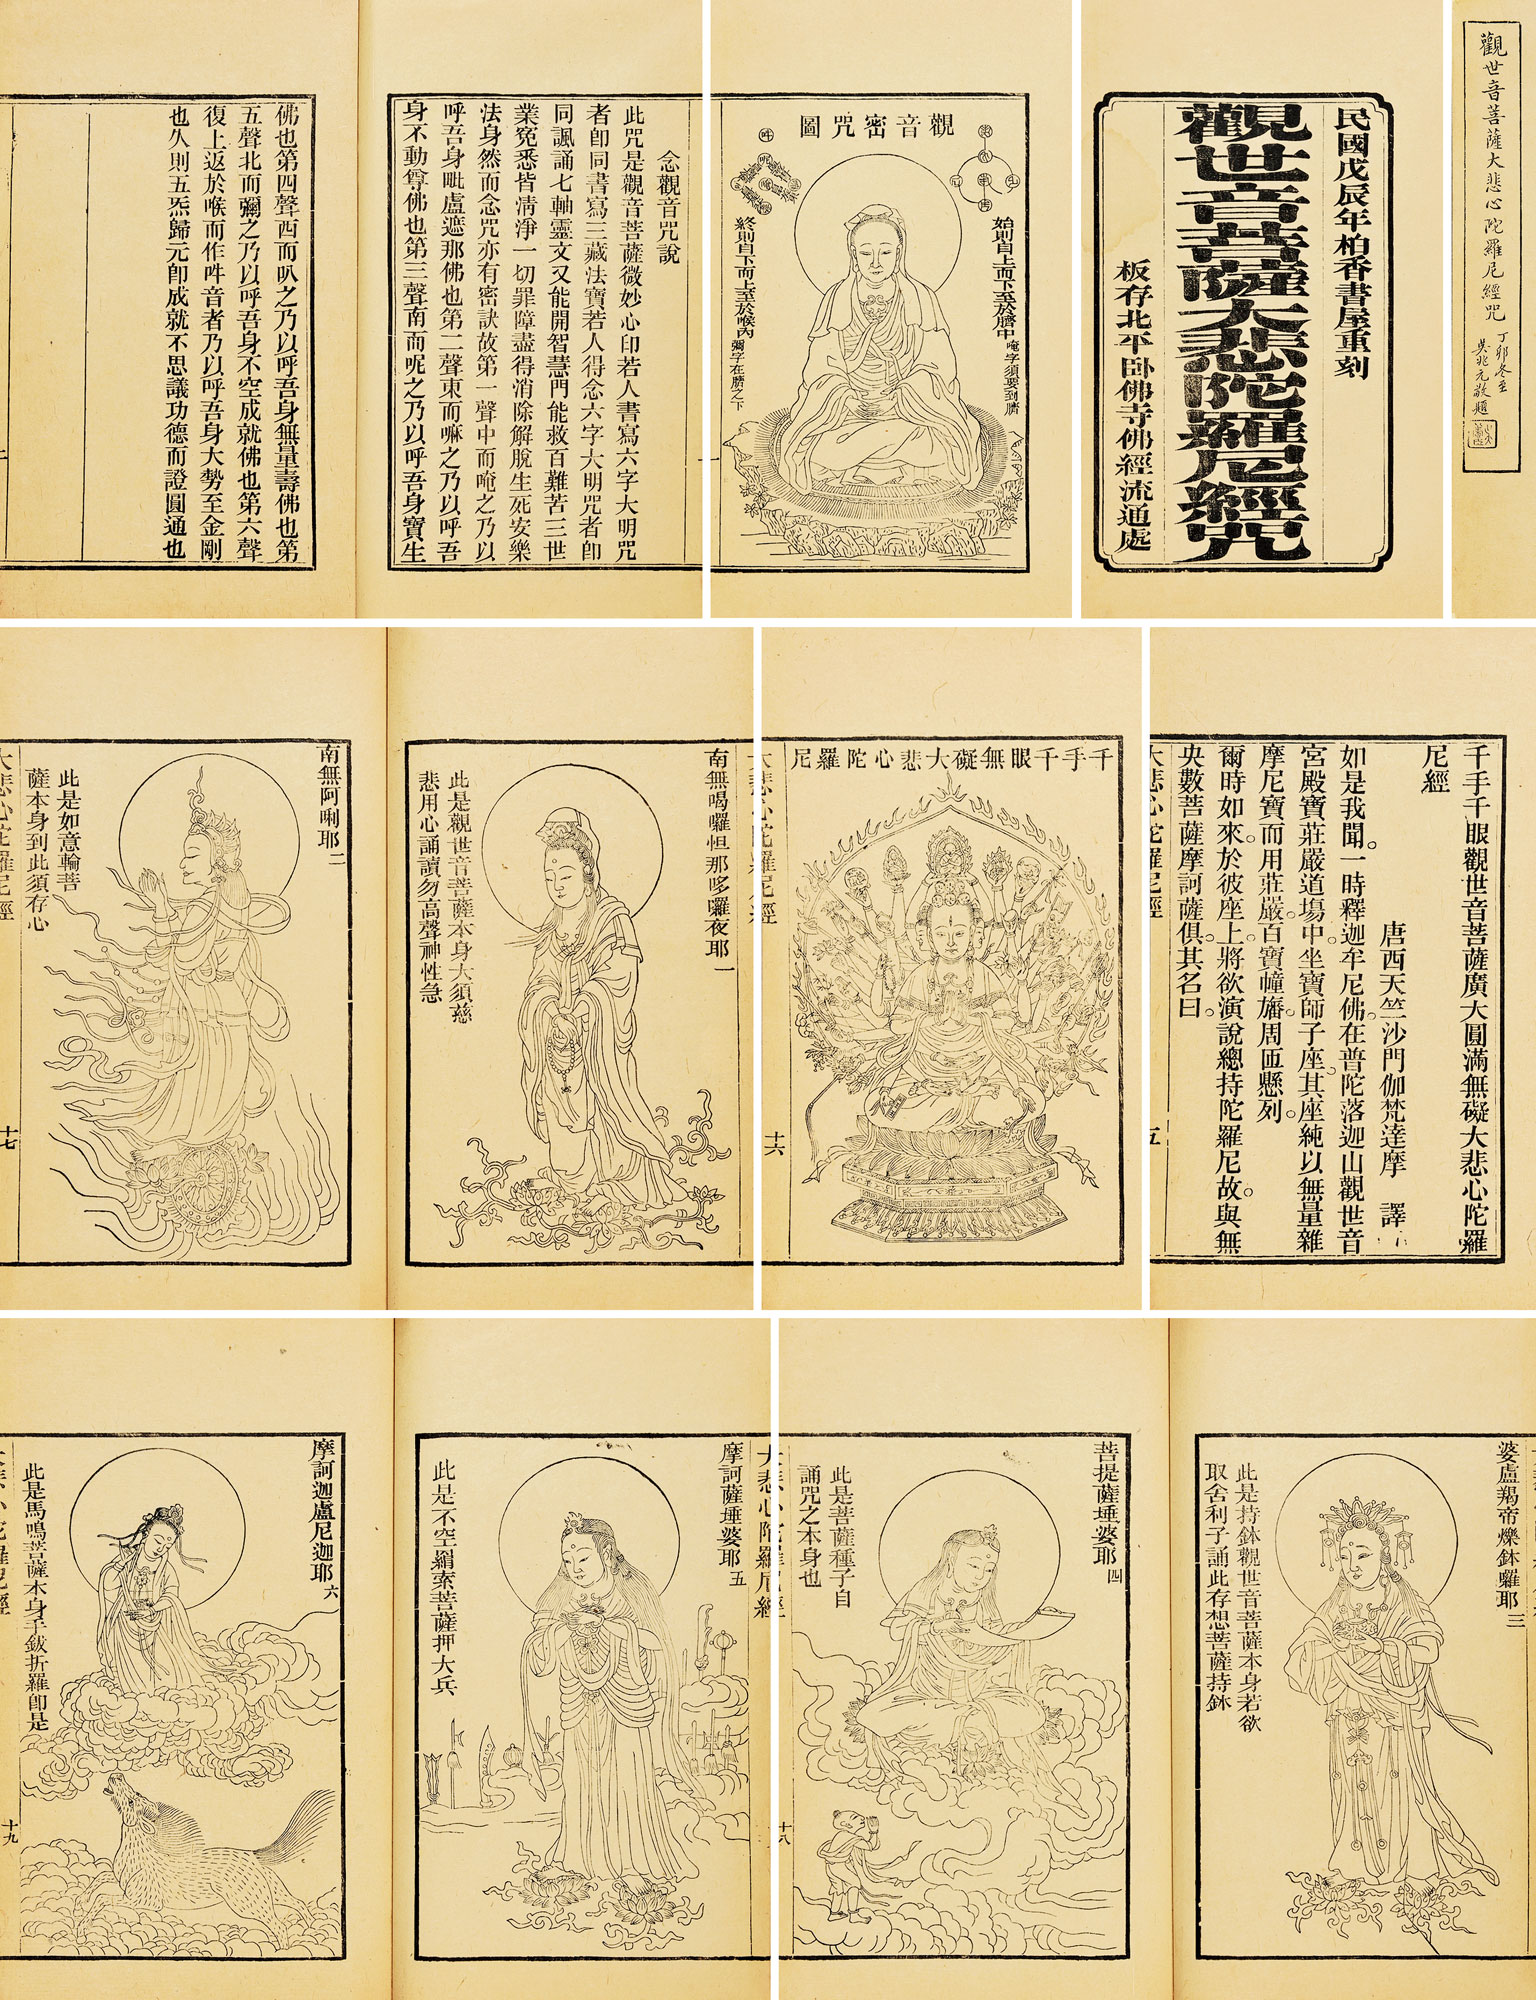 觀世音菩薩大悲心陀羅尼經咒
丁卯冬至
吳兆元敬題
民國戊辰年柏香書屋重刻
觀世音菩薩大悲陀羅尼經咒
板存北平卧佛寺佛經流通處
觀音密咒圖
始則自上而下至於臍中唵字須要到臍
終則自下而上至於喉內彌字在臍之下
一
念觀音咒說
此咒是觀音菩薩微妙心印若人書寫六字大明咒
者卽同書寫三藏法寶若人得念六字大明咒者卽
同諷誦七軸靈文又能開智慧門能救百難苦三世
業冤悉皆清淨一切罪障盡得消除解脫生死安樂
法身然而念咒亦有密訣故第一聲中而唵之乃以
呼吾身毗盧遮那佛也第二聲東而嘛之乃以呼吾
身不動尊佛也第三聲南而呢之乃以呼吾身寶生
佛也第四聲西而叭之乃以呼吾身無量壽佛也第
五聲北而彌之乃以呼吾身不空成就佛也第六聲
復上返於喉而作吽音者乃以呼吾身大勢至金剛
也久則五炁歸元卽成就不思議功德而證圓通也
千手千眼觀世音菩薩廣大圓滿無礙大悲心陀羅
尼經
唐西天竺沙門伽梵達摩　譯
如是我聞。一時釋迦牟尼佛。在普陀落迦山觀世音
宮殿寶莊嚴道場中。坐寶師子座。其座純以無量雜
摩尼寶而用莊嚴。百寶幢旛。周匝懸列。
爾時如來。於彼座上。將欲演說總持陀羅尼故。與無
央數菩薩摩訶薩俱。其名曰。
大悲心陀羅尼經
五
千手千眼無礙大悲心陀羅尼
大悲心陀羅尼經
十六
南無喝囉怛那哆囉夜耶一
此是觀世音菩薩本身大須慈
悲用心誦讀勿高聲神性急
南無阿唎耶二
此是如意輪菩
薩本身到此須存心
大悲心陀羅尼經
十七
婆盧羯帝爍鉢囉耶三
此是持鉢觀世音菩薩本身若欲
取舍利子誦此存想菩薩持鉢
菩提薩埵婆耶四
此是菩薩種子自
誦咒之本身也
十八
大悲心陀羅尼經
摩訶薩埵婆耶五
此是不空羂索菩薩押大兵
摩訶迦盧尼迦耶六
此是馬鳴菩薩本身手鈸折羅卽是
大悲心陀羅尼經
十九